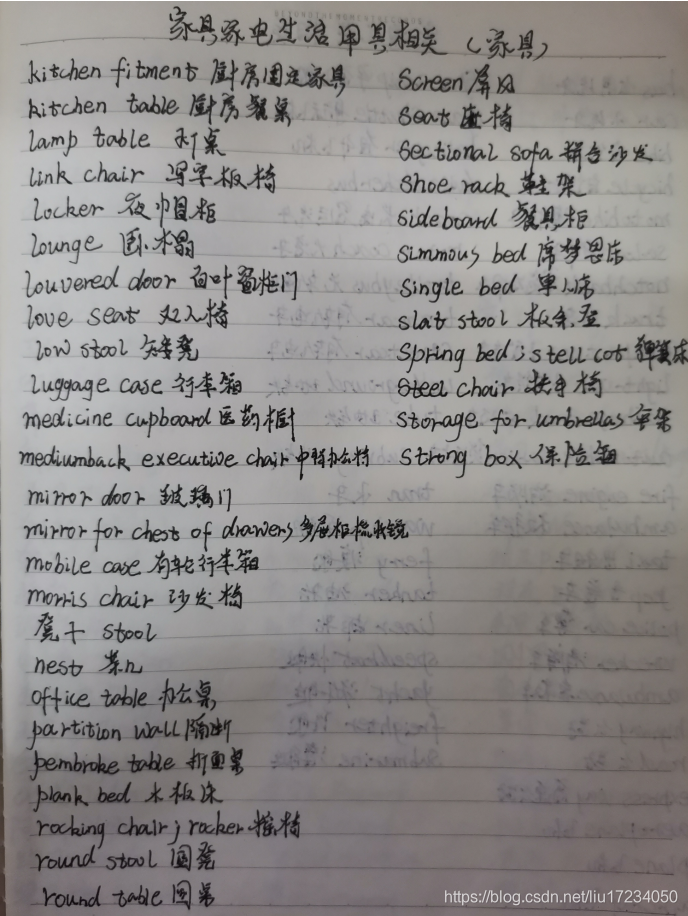 家具家电生活用具相关（家具）
kitchen fitment 厨房固定家具
kitchen table 厨房餐桌
lamp table 灯桌
link chair 写字板椅
locker 衣帽柜
lounge 卧榻
louvered door 百叶窗柜门
love seat 双人椅
low stool 矮凳
luggage case 行李箱
medicine cupboard 医药橱
mediumback executive chair 中背办公椅
mirror door 玻璃门
mirror for chest of drawers 多屉柜梳妆镜
mobile case 有轮行李箱
morris chair 沙发椅
凳子 stool
nest 茶几
office table 办公桌
partition wall 隔断
pembroke table 折面桌
plank bed 木板床
rocking chair; rocker 摇椅
round stool 圆凳
round table 圆桌
Screen 屏风
Seat 座椅
Sectional sofa 拼合沙发
Shoe rack 鞋架
Sideboard 餐具柜
Simmous bed 席梦思床
Single bed 单人床
slat stool 板条凳
Spring bed; stell cot 弹簧床
Steel chair 扶手椅
Storage for umbrellas 伞架
Strong box 保险箱
https://blog.csdn.net/liu17234050